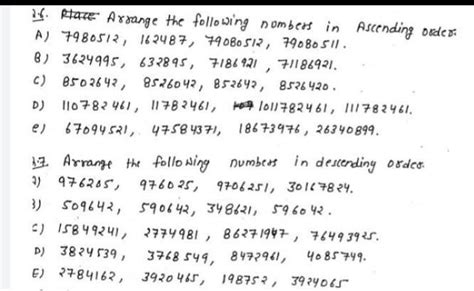 16. Arrange the following numbers in Ascending order.
A) 7980512, 162487, 79080512, 79080511.
B) 3624995, 632895, 7186921, 71186921.
C) 8502642, 8526042, 852642, 8526420.
D) 110782461, 11782461, 1011782461, 111782461.
e) 67094521, 47584371, 18673976, 26340899.
17. Arrange the following numbers in descending order.
A) 976205, 976025, 9706251, 30167824.
B) 509642, 590642, 348621, 596042.
C) 15849241, 2774981, 86271947, 76493925.
D) 3824539, 3768549, 8472961, 4085749.
E) 2784162, 3920465, 198752, 3924065